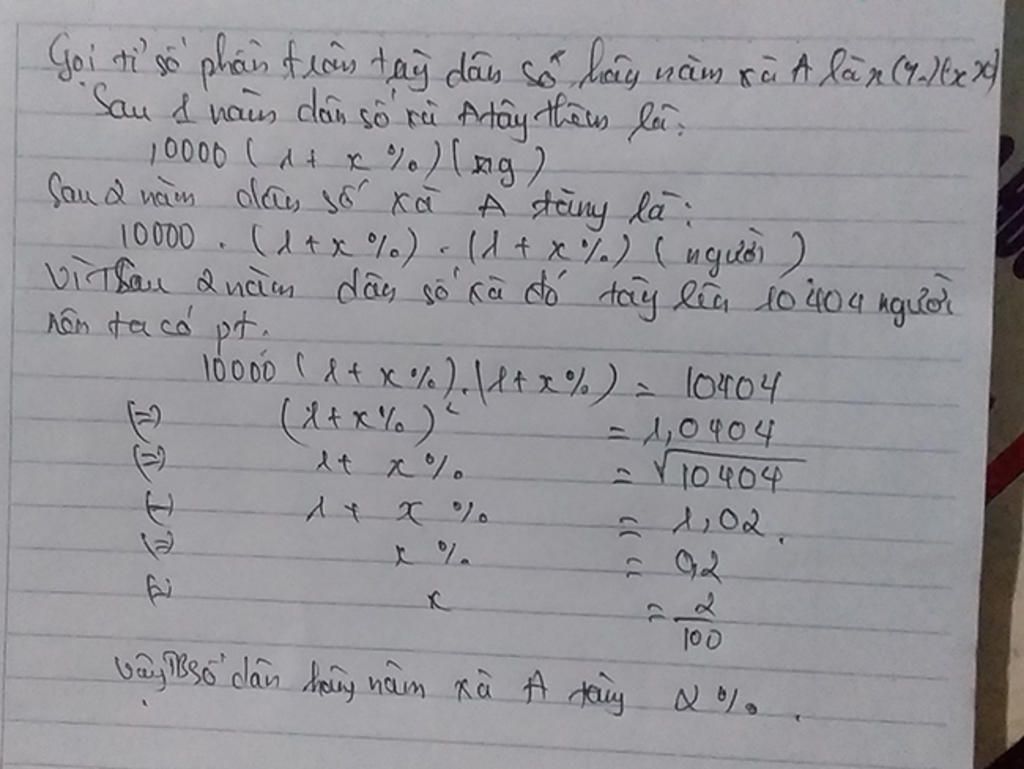 Gọi tỉ số phần trăm tăng dân số hàng năm xã A là x (%) (x >
Sau 1 năm dân số xã A tăng thêm là:
10000 (1 + x %) (ng)
Sau 2 năm dân số xã A tăng là:
10000 . (1 + x %) . (1 + x %) (người)
Vì sau 2 năm dân số xã đó tăng lên 10404 người
nên ta có pt.
10000 (1 + x %) . (1 + x %) = 10404
(=) (1 + x %)² = 1,0404
(=) 1 + x % = √10404
(=) 1 + x % = 1,02.
(=) x % = 0,2
(=) x = 2/100
Vậy TB số dân hàng năm xã A tăng 2 %.